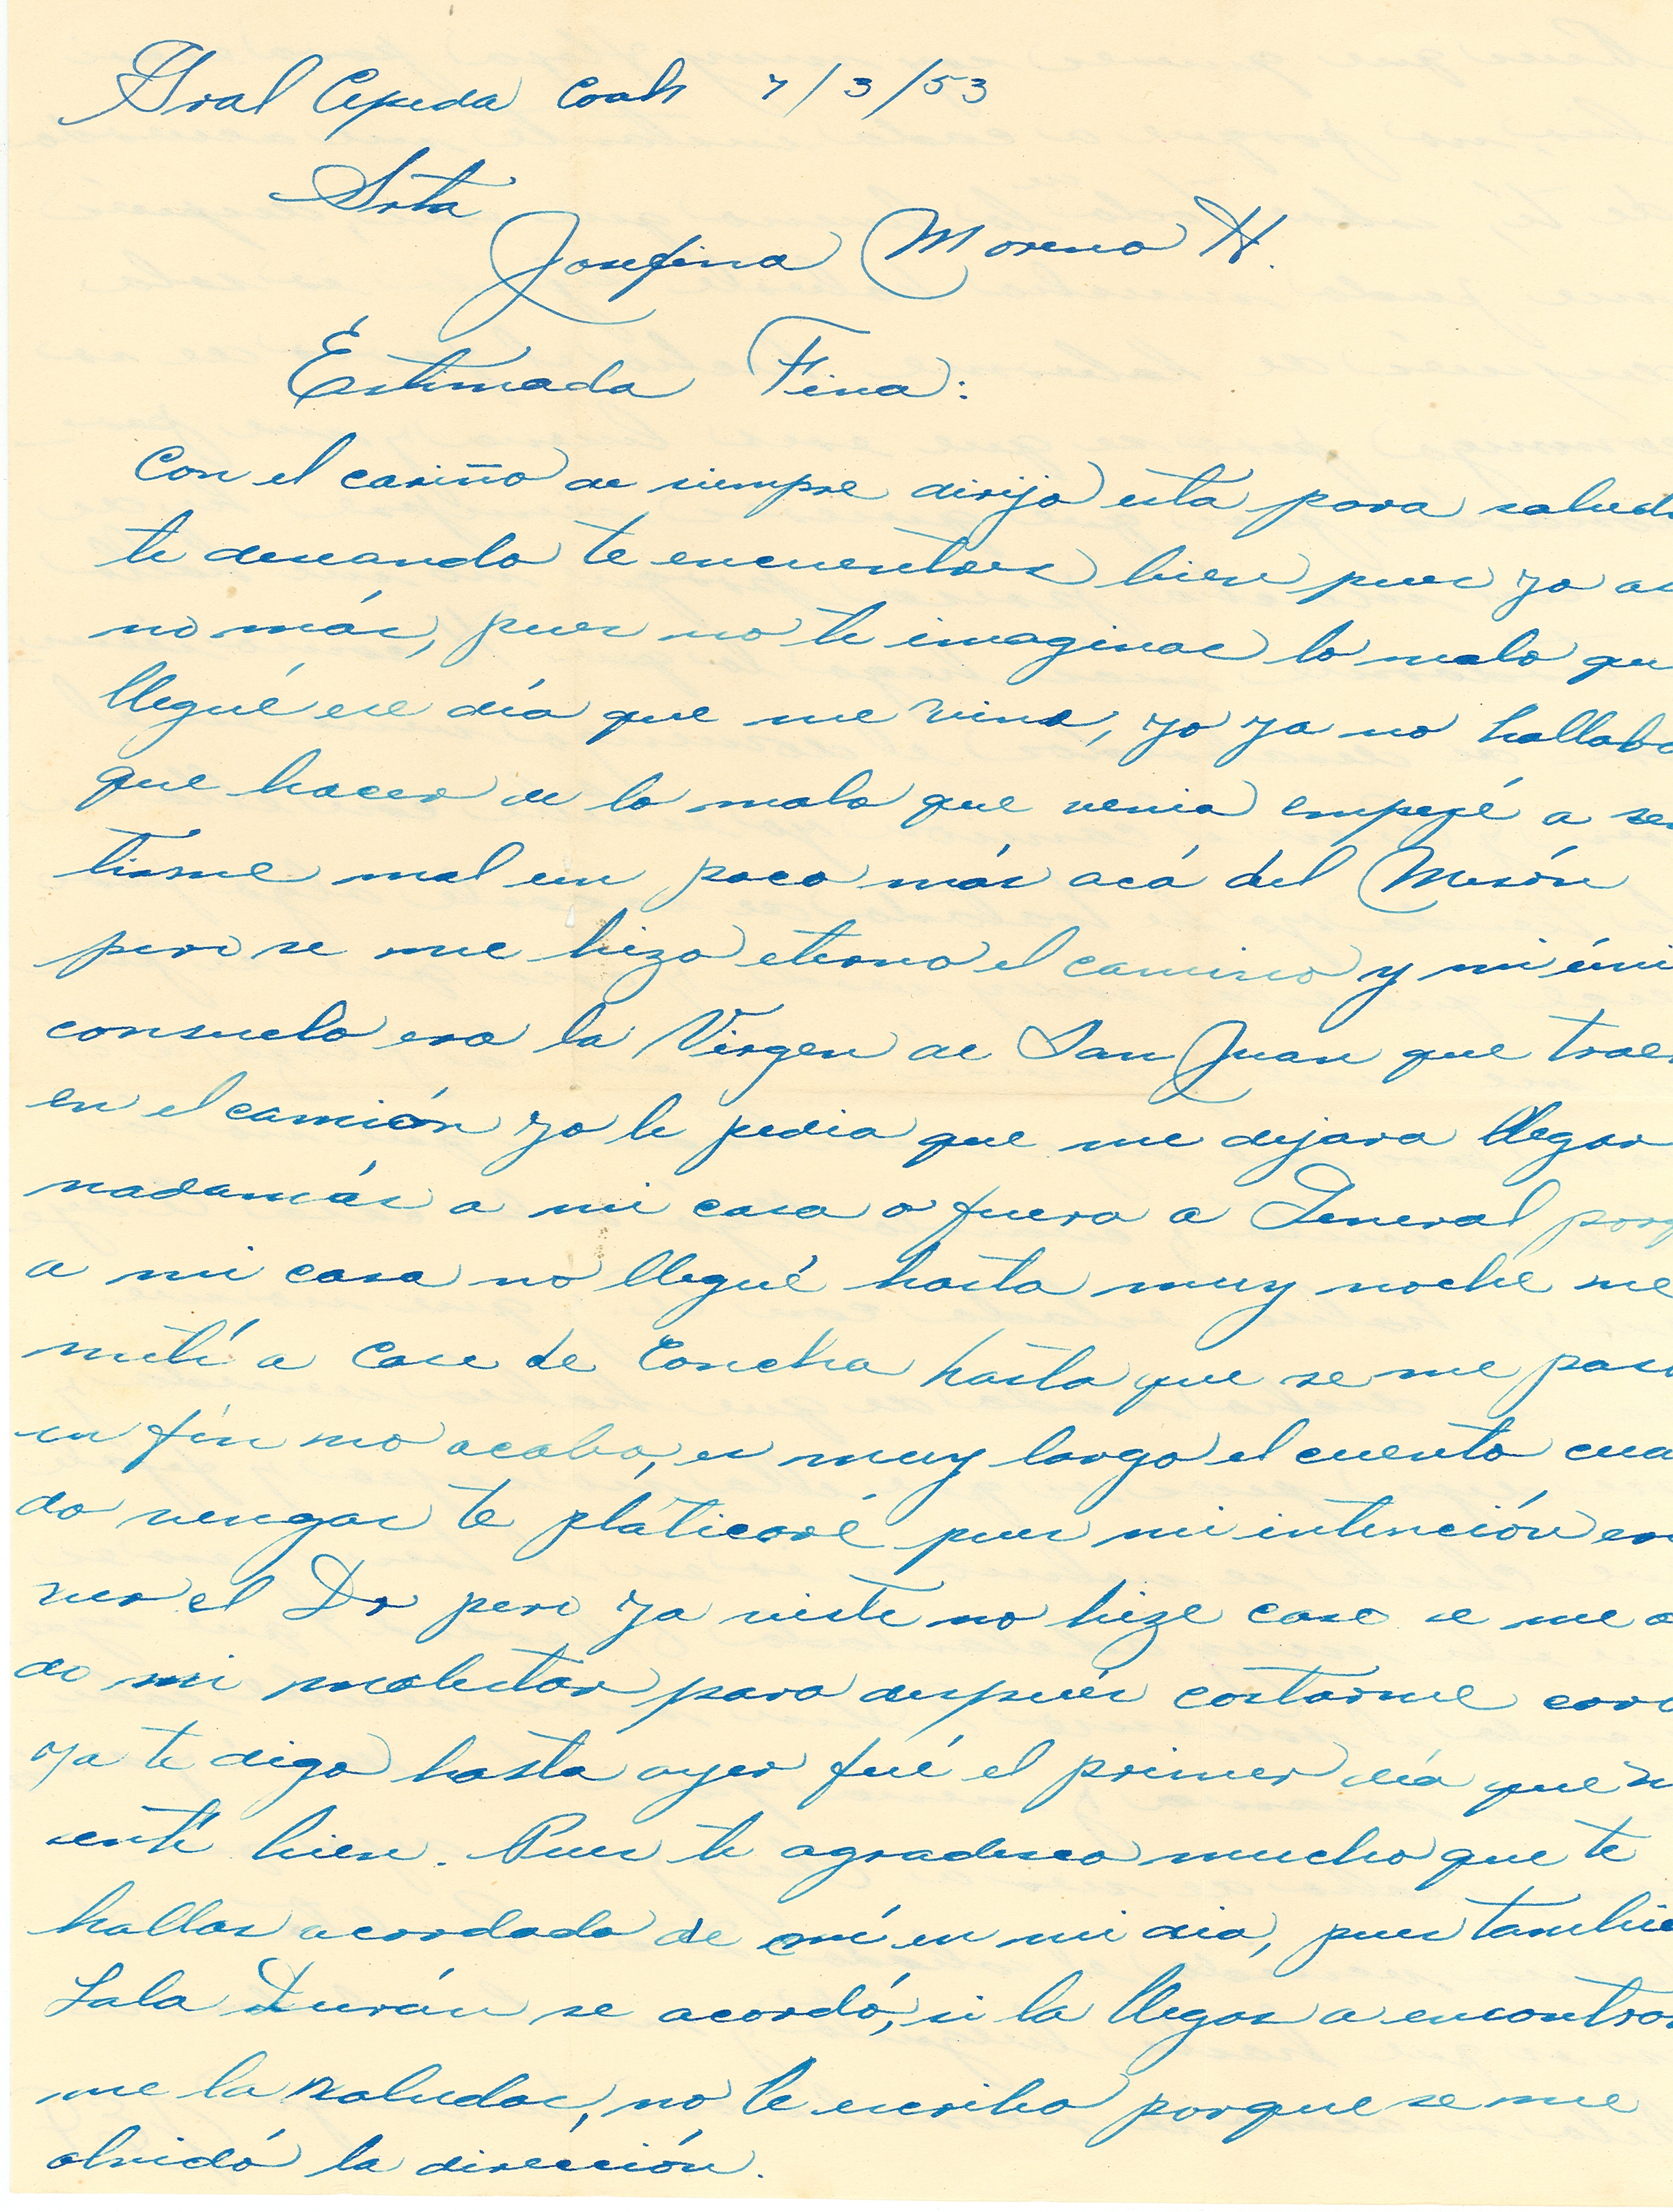 Gral Cepeda Coah 7/3/53
Srta
Josefina Moreno H.
Estimada Fina:
Con el cariño de siempre dirijo esta para salud
te deseando te encuentres bien pues yo as
no más, pues no te imaginas lo malo qu
llegué ese día que me vine, yo ya no hallaba
que hacer de lo mala que venia empezé a sen
tirme mal un poco más acá del Mesón
pero se me hizo eterno el camino y mi úni
consuelo era la Virgen de San Juan que traer
en el camión yo le pedia que me dejara llegar
nadamás a mi casa o fuera a General porq
a mi casa no llegué hasta muy noche me
metí a casa de Concha hasta que se me paso
en fín no acabo, es muy largo el cuento cua
do vengas te platicaré pues mi intención er
ver el Dr pero ya viste no hize caso se me
do mi malestar para después costarme caro
ya te digo hasta ayer fué el primer día que
sentí bien. Pues te agradesco mucho que te
hallas acordado de mí en mi dia, pues tambie
Lala Durán se acordó, si la llegas a encontrar
me la saludas, no le escribo porque se me
olvidó la dirección.